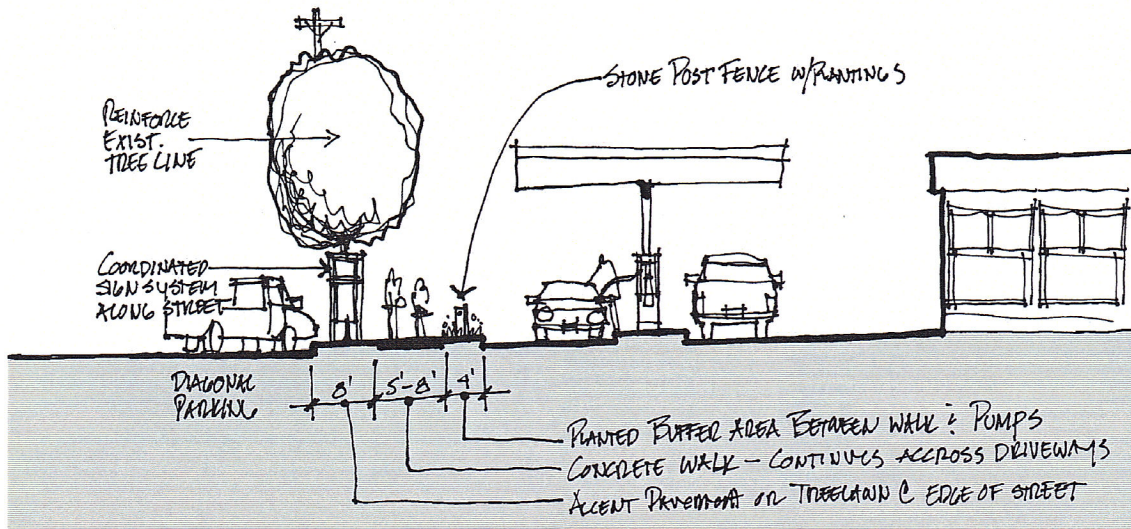 STONE POST FENCE W/PLANTINGS
REINFORCE
EXIST.
TREE LINE
COORDINATED
SIGN SYSTEM
ALONG STREET
DIAGONAL
PARKING
8'
5'-8'
4'
PLANTED BUFFER AREA BETWEEN WALK & PUMPS
CONCRETE WALK - CONTINUES ACCROSS DRIVEWAYS
ACCENT PAVEMENT OR TREELAWN @ EDGE OF STREET